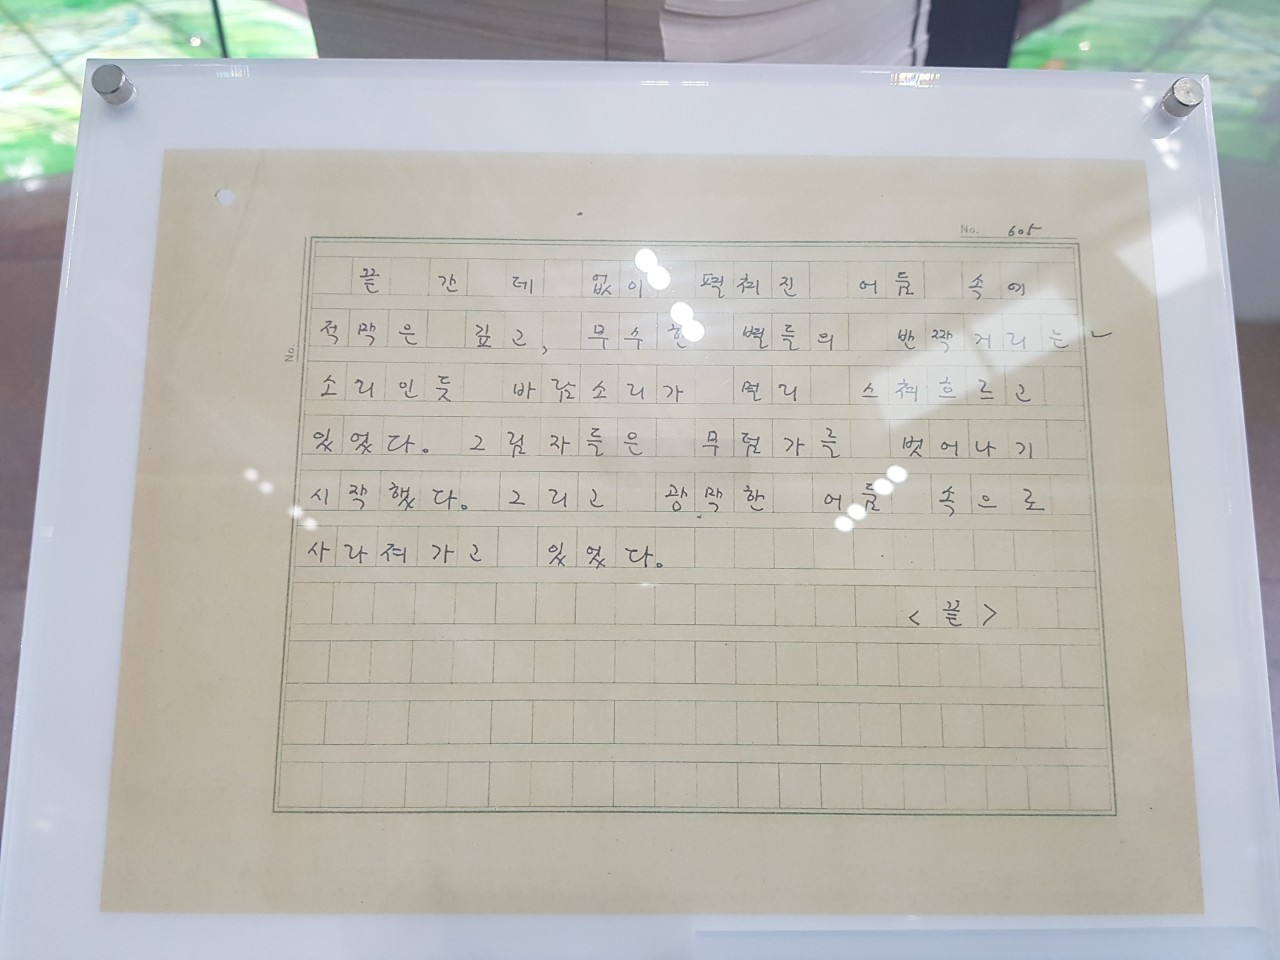 No. 605
끝 간 데 없이 펼쳐진 어둠 속에
적막은 깊고, 무수한 별들의 반짝거리는✓
소리인듯 바람소리가 멀리 스쳐흐르고
있었다. 그림자들은 무덤가를 벗어나기
시작했다. 그리고 광막한 어둠 속으로
사라져가고 있었다.
<끝>
No.